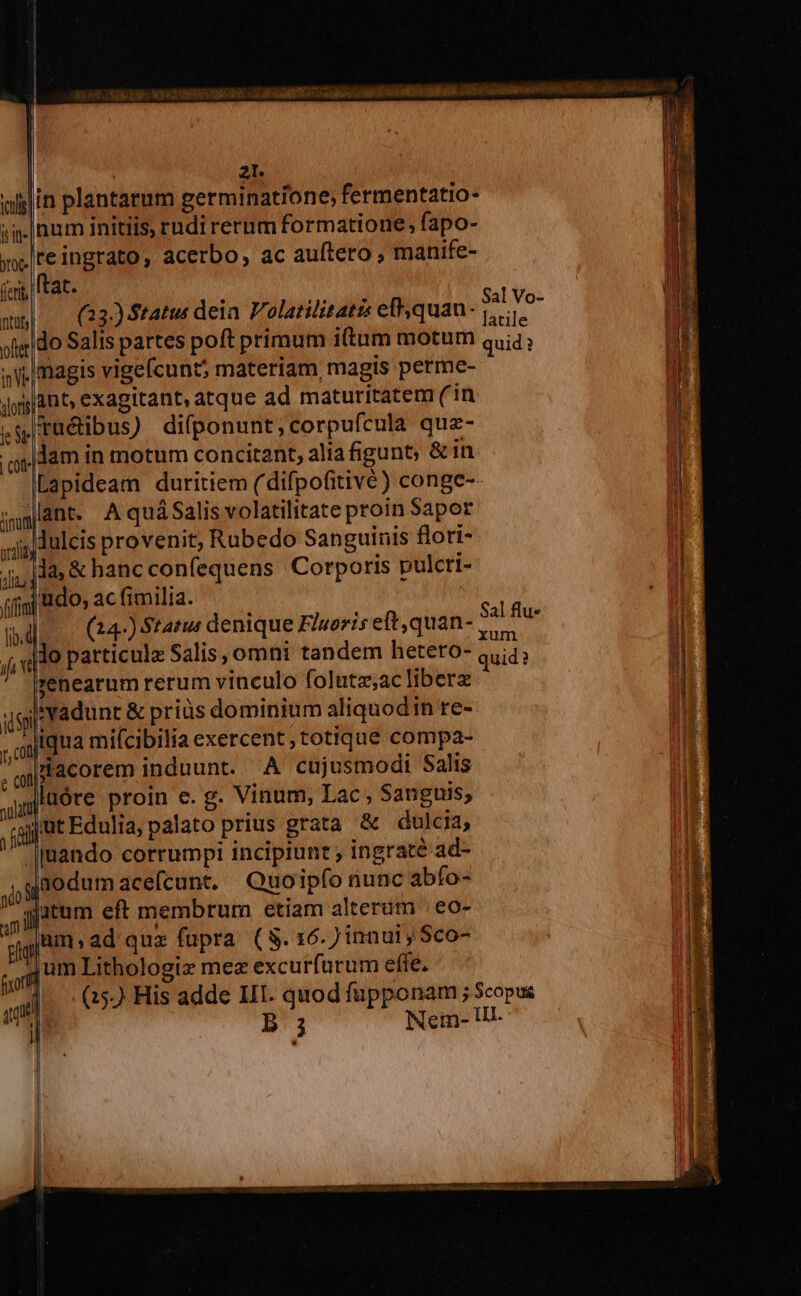 21.
in plantarum germinatione, fermentatio-
num initiis, rudi rerum formatione, ſapo-
re ingrato, acerbo, ac auſtero, manife-
ſtat.
(23.) Status dein Volatilitatis eſt, quan-
do Salis partes poſt primum iſtum motum
magis vigeſcunt; materiam magis perme-
ant, exagitant, atque ad maturitatem (in
fructibus) diſponunt, corpuſcula quæ-
dam in motum concitant, alia figunt, & in
Lapideam duritiem (diſpoſitivè) conge-
lant. A quâ Salis volatilitate proin Sapor
dulcis provenit, Rubedo Sanguinis flori-
da, & hanc conſequens Corporis pulcri-
tudo, ac ſimilia.
(24.) Status denique Fluoris eſt, quan-
do particulæ Salis, omni tandem hetero-
genearum rerum vinculo ſolutæ, ac liberæ
evadunt & priùs dominium aliquod in re-
liqua miſcibilia exercent, totique compa-
induunt. A cujusmodi Salis
fluóre proin e. g. Vinum, Lac, Sanguis,
aut Edulia, palato prius grata & dulcia,
quando corrumpi incipiunt, ingratè ad-
modum aceſcunt. Quo ipſo nunc abſo-
lutum eſt membrum etiam alterum eo-
rum, ad quæ ſupra (§. 16.) innui, Sco-
pum Lithologiæ meæ excurſurum eſſe.
(25.) His adde III. quod ſupponam;
B 3 Nem-
Sal Vo-
latile
quid?
Sal flu-
xum
quid?
Scopus
III.